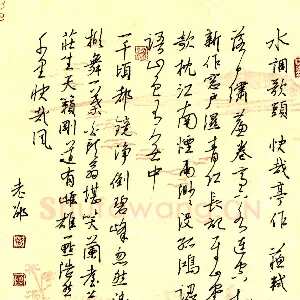 水调歌头 快哉亭作 苏轼
落日绣帘卷 亭下水连空
新作 窗户湿青红 长记平山堂
欹枕江南烟雨 渺渺没孤鸿 认
语 山色有无中
一千顷 都镜净 倒碧峰 忽然浪
掀舞 一叶白头翁 堪笑兰台
庄生天籁 刚道有雌雄 一点浩然
千里快哉风